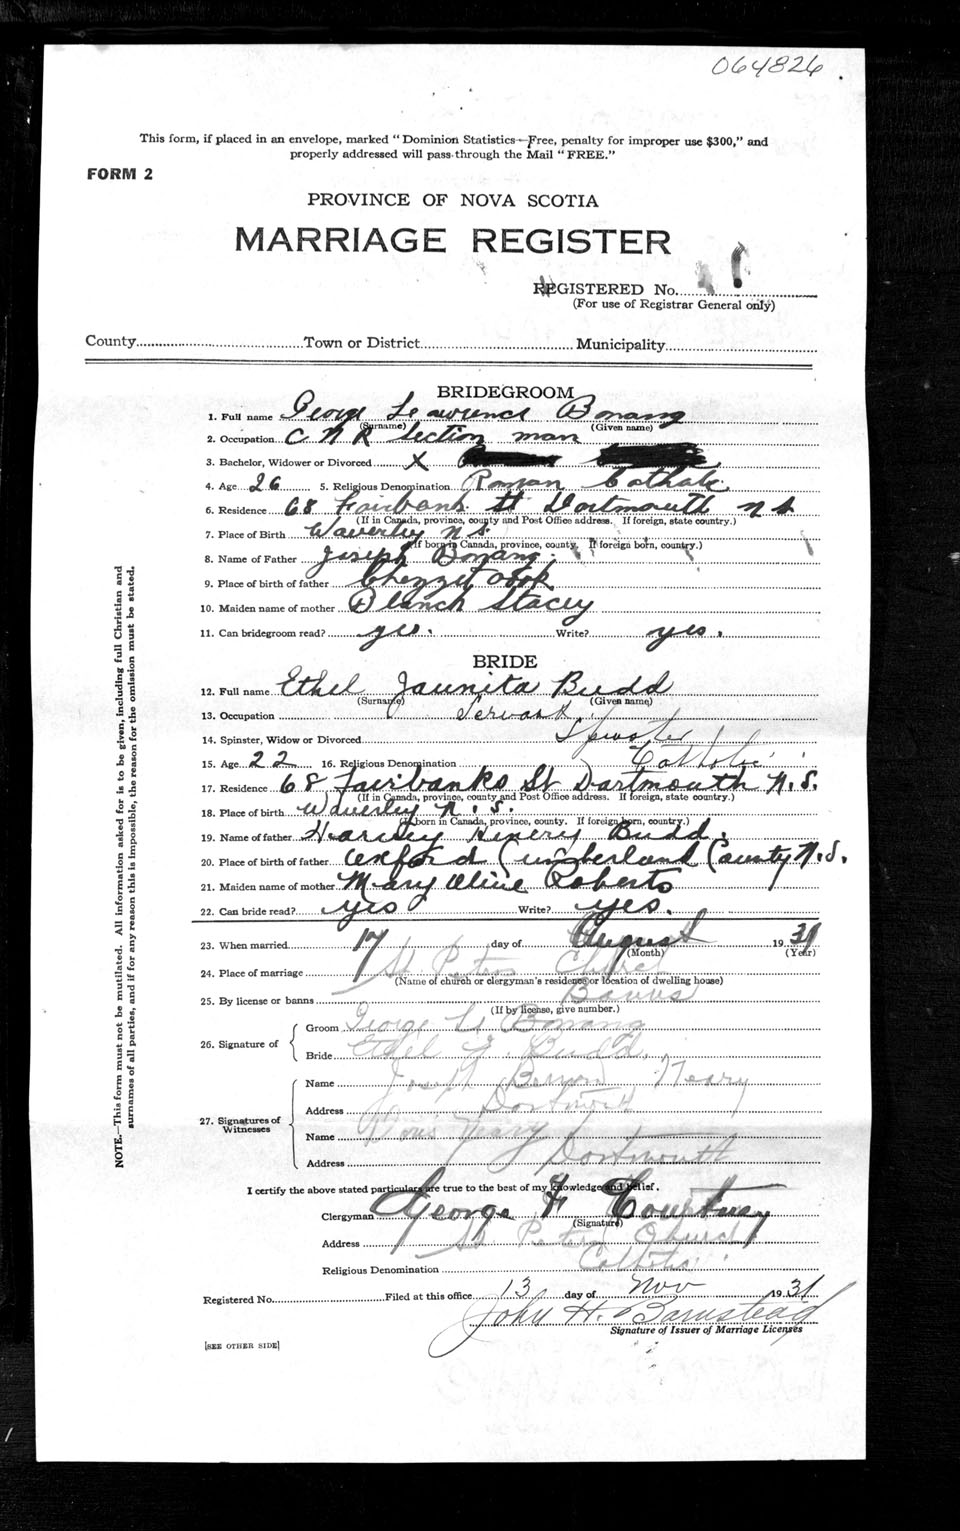 064826
This form, if placed in an envelope, marked "Dominion Statistics—Free, penalty for improper use $300," and
properly addressed will pass through the Mail "FREE."
FORM 2
PROVINCE OF NOVA SCOTIA
MARRIAGE REGISTER
REGISTERED No.
(For use of Registrar General only)
County Town or District Municipality
BRIDEGROOM
1. Full name George Lawrence Bonang
(Surname) (Given name)
2. Occupation C N R section man
3. Bachelor, Widower or Divorced X
4. Age 26 5. Religious Denomination Roman Catholic
6. Residence 68 Fairbanks St Dortmouth N S
(If in Canada, province, county and Post Office address. If foreign, state country.)
7. Place of Birth Waverley N S.
(If born in Canada, province, county. If foreign born, country.)
8. Name of Father Joseph Bonang.
9. Place of birth of father Chezzetcook
10. Maiden name of mother Blanch Stacey
11. Can bridegroom read? yes. Write? yes.
BRIDE
12. Full name Ethel Jaunita Budd
(Surname) (Given name)
13. Occupation Servant.
14. Spinster, Widow or Divorced Spinster
15. Age 22 16. Religious Denomination Catholic
17. Residence 68 Fairbanks St Dartmouth N.S.
(If in Canada, province, county and Post Office address. If foreign, state country.)
18. Place of birth Waverley N.S.
(If born in Canada, province, county. If foreign born, country.)
19. Name of father Harvey Henery Budd.
20. Place of birth of father Oxford Cumberland County N.S.
21. Maiden name of mother Mary Oline Roberts
22. Can bride read? yes Write? yes.
23. When married 17 day of August 1931
(Month) (Year)
24. Place of marriage St Peters Chapel
(Name of church or clergyman's residence or location of dwelling house)
25. By license or banns Banns
(If by license, give number.)
26. Signature of
Groom George L. Bonang
Bride Ethel J. Budd.
27. Signatures of Witnesses
Name Joseph Neary
Address Dortmouth
Name Neary
Address Dortmouth
I certify the above stated particulars are true to the best of my knowledge and belief.
Clergyman George F Courtney
(Signature)
Address St Peters Church
Religious Denomination Catholic
Registered No. Filed at this office 13 day of Nov 1931
John H. Barnstead
Signature of Issuer of Marriage Licenses
[SEE OTHER SIDE]
NOTE.—This form must not be mutilated. All information asked for is to be given, including full Christian and
surnames of all parties, and if for any reason this is impossible, the reason for the omission must be stated.